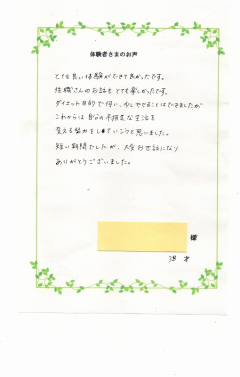 体験者さまのお声
とても良い体験ができて良かったです。
住職さんのお話も とても楽しかったです。
ダイエット目的で伺い、少しやせることはできましたが
これからは 自分の不規則な生活を
変える努力をしていこうと思いました。
短い期間でしたが、大変お世話になり
ありがとうございました。
様
38 才